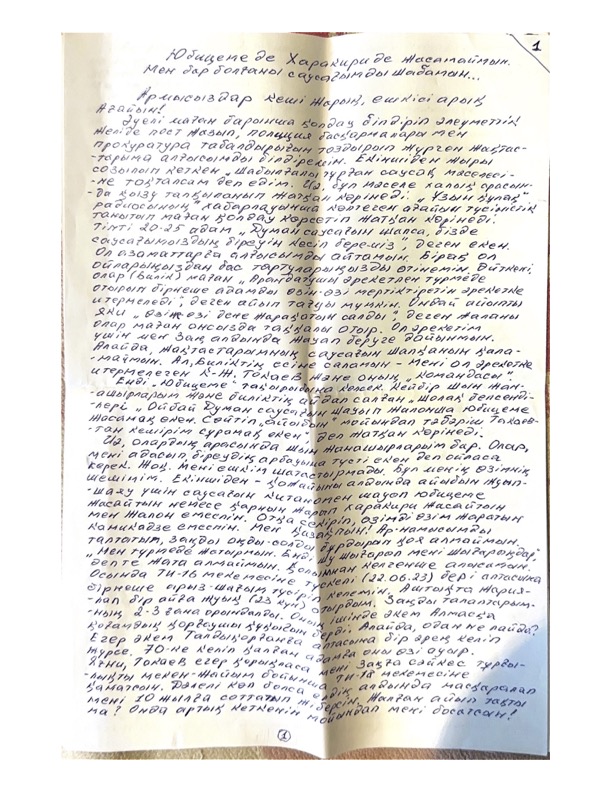 1
Юбицеме де Харакири де Жасамаймын.
Мен бар болғаны саусағымды шабамын...
Армысыздар кеші жарық, ешкісі арық
Ағайын!
Әуелі маған барынша қолдау білдіріп әлеуметтік
желіде пост жазып, полиция басқармалары мен
прокуратура табалдырығын тоздырып жүрген жақтас-
-тарыма алғысымды білдіремін. Екіншіден жыры
созылып кеткен „Шабылғалы тұрған саусақ мәселесі-
-не тоқталсам деп едім. Иә, бұл мәселе халық арасын-
-да қызу талқыланып жатқан көрінеді. „Ұзын құлақ"
радиосының" хабарлауынша көптеген ағайын түсіністік
танытып маған қолдау көрсетіп жатқан көрінеді.
Тіпті 20-25 адам „Думан саусағын шапса, бізде
саусағымыздың біреуін кесіп береміз", деген екен.
Ол азаматтарға алғысымды айтамын. Бірақ ол
ойларыңыздан бас тартуларыңызды өтінемін. Өйткені,
олар (билік) маған „Арандатушы әрекетпен түрмеде
отырып бірнеше адамды өзін-өзі мертіктіретін әрекетке
итермеледі", деген айып тағуы мүмкін. Ондай айыпты
яки „өзіне өзі дене жарақатын салды", деген жаланы
олар маған онсызда таққалы отыр. Ол әрекетім
үшін мен Заң алдында жауап беруге дайынмын.
Алайда, жақтастарымның саусағын шапқанын қала-
-маймын. Ал, Биліктің есіне саламын - мені ол әрекетке
итермелеген Қ-Ж. Тоқаев және оның „командасы"
Енді „Юбицеме" тақырыбына көшсек. Кейбір шын жан-
-ашырларым және биліктің айдап салған „Шолақ белсенді-
-лері „Ойбай Думан саусағын шауып жапонша юбицеме
жасамақ екен. Сөйтіп „айыбын" мойындап тақсыр Тоқаев-
-тан кешірім сұрамақ екен" деп жатқан көрінеді.
Иә, олардың арасында шын жанашырларым бар. Олар,
мені адасып, біреудің арбауына түсті екен деп ойласа
керек. Жоқ. Мені ешкім шатастырмады. Бұл менің өзімнің
шешімім. Екіншіден - қожайыны алдында айыбын жуып-
-шаю үшін саусағын китанмен шауып юбицеме
жасайтын немесе қарнын жарып харакири жасайтын
мен жапон емеспін. Отқа секіріп, өзімді өзім жаратын
камикадзе емеспін. Мен Қазақпын! Ар-намысымды
таптатып, заңды оңды-солды бұрдырып қоя алмаймын.
„Мен түрмеде жатырмын. Енді шу шығарып мені шығарыңдар",
деп те жата алмаймын. Қолымнан келгенше алысамын.
Осында ТИ-16 мекемесіне түскелі (22.06.23) бері алтасына
бірнеше арыз-шағым түсіріп келемін. Аштықта жария-
-лап бір айға жуық (23 күн) отырдым. Заңды талаптарым-
-ның 2-3 ғана орындалды. Оның ішінде әкем Алмасқа
қоғамдық қорғаушы құқығын берді. Алайда, одан не пайда?
Егер әкем Талдықорғанға алтасына бір әрең келіп
жүрсе. 70-ке келіп қалған адамға оны өзі ауыр.
Яғни, Тоқаев егер қорықпаса мені Заңға сәйкес тұрғы-
-лықты мекен-жайым бойынша ТИ-18 мекемесіне
қаматсын. Дәлелі көп болса елдің алдында масқаралап
мені 10 жылға соттатып жіберсін. Жалған айып тақты
ма? Онда артық кеткенін мойындап мені босатсын!
1